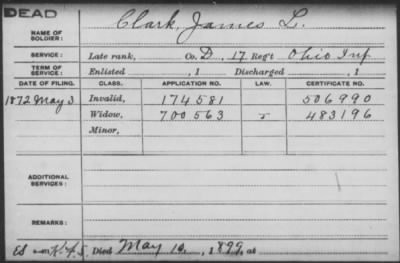 DEAD
NAME OF SOLDIER: Clark, James L.
SERVICE: Late rank, Co. D, 17 Reg't Ohio Inf
TERM OF SERVICE: Enlisted , 1 Discharged , 1
DATE OF FILING. CLASS. APPLICATION NO. LAW. CERTIFICATE NO.
1872 May 3 Invalid, 174581 506990
Widow, 700563 483196
Minor,
ADDITIONAL SERVICES:
REMARKS:
Died May , 1899, at